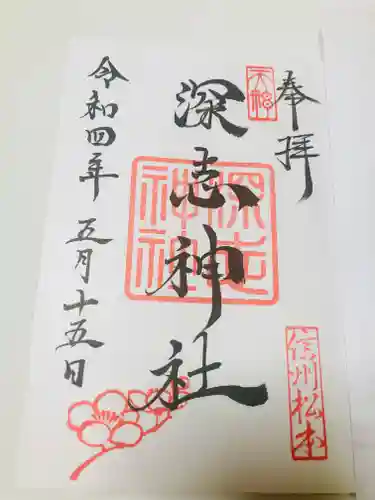 奉拝
天神
深志神社
深志神社
信州松本
令和四年 五月十五日